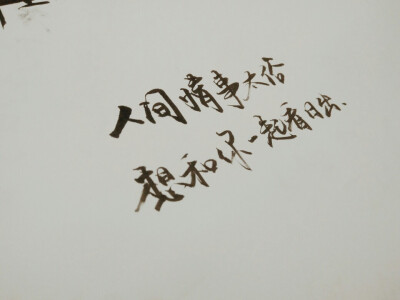 人间情事太俗
想和你一起看日出、